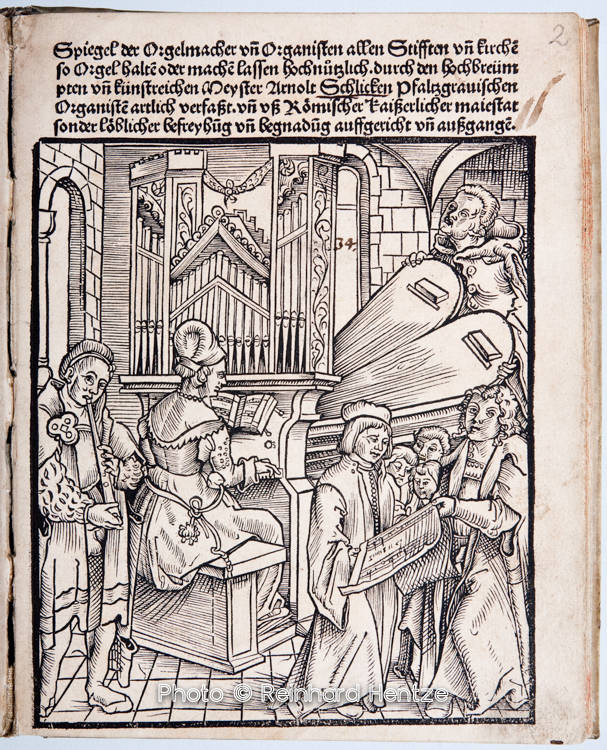 Spiegel der Orgelmacher vñ Organisten allen Stifften vñ kirchē
so Orgel haltē oder machē lassen hochnützlich. durch den hochbreüm
pten vñ künstreichen Meyster Arnolt Schlicken Pfaltzgrauischen
Organistē artlich verfaßt. vñ vß Römischer kaißerlicher maiestat
sonder löblicher befreyhūg vñ begnadūg auffgericht vñ außgangē.
2
34
Photo © Reinhard Hentze